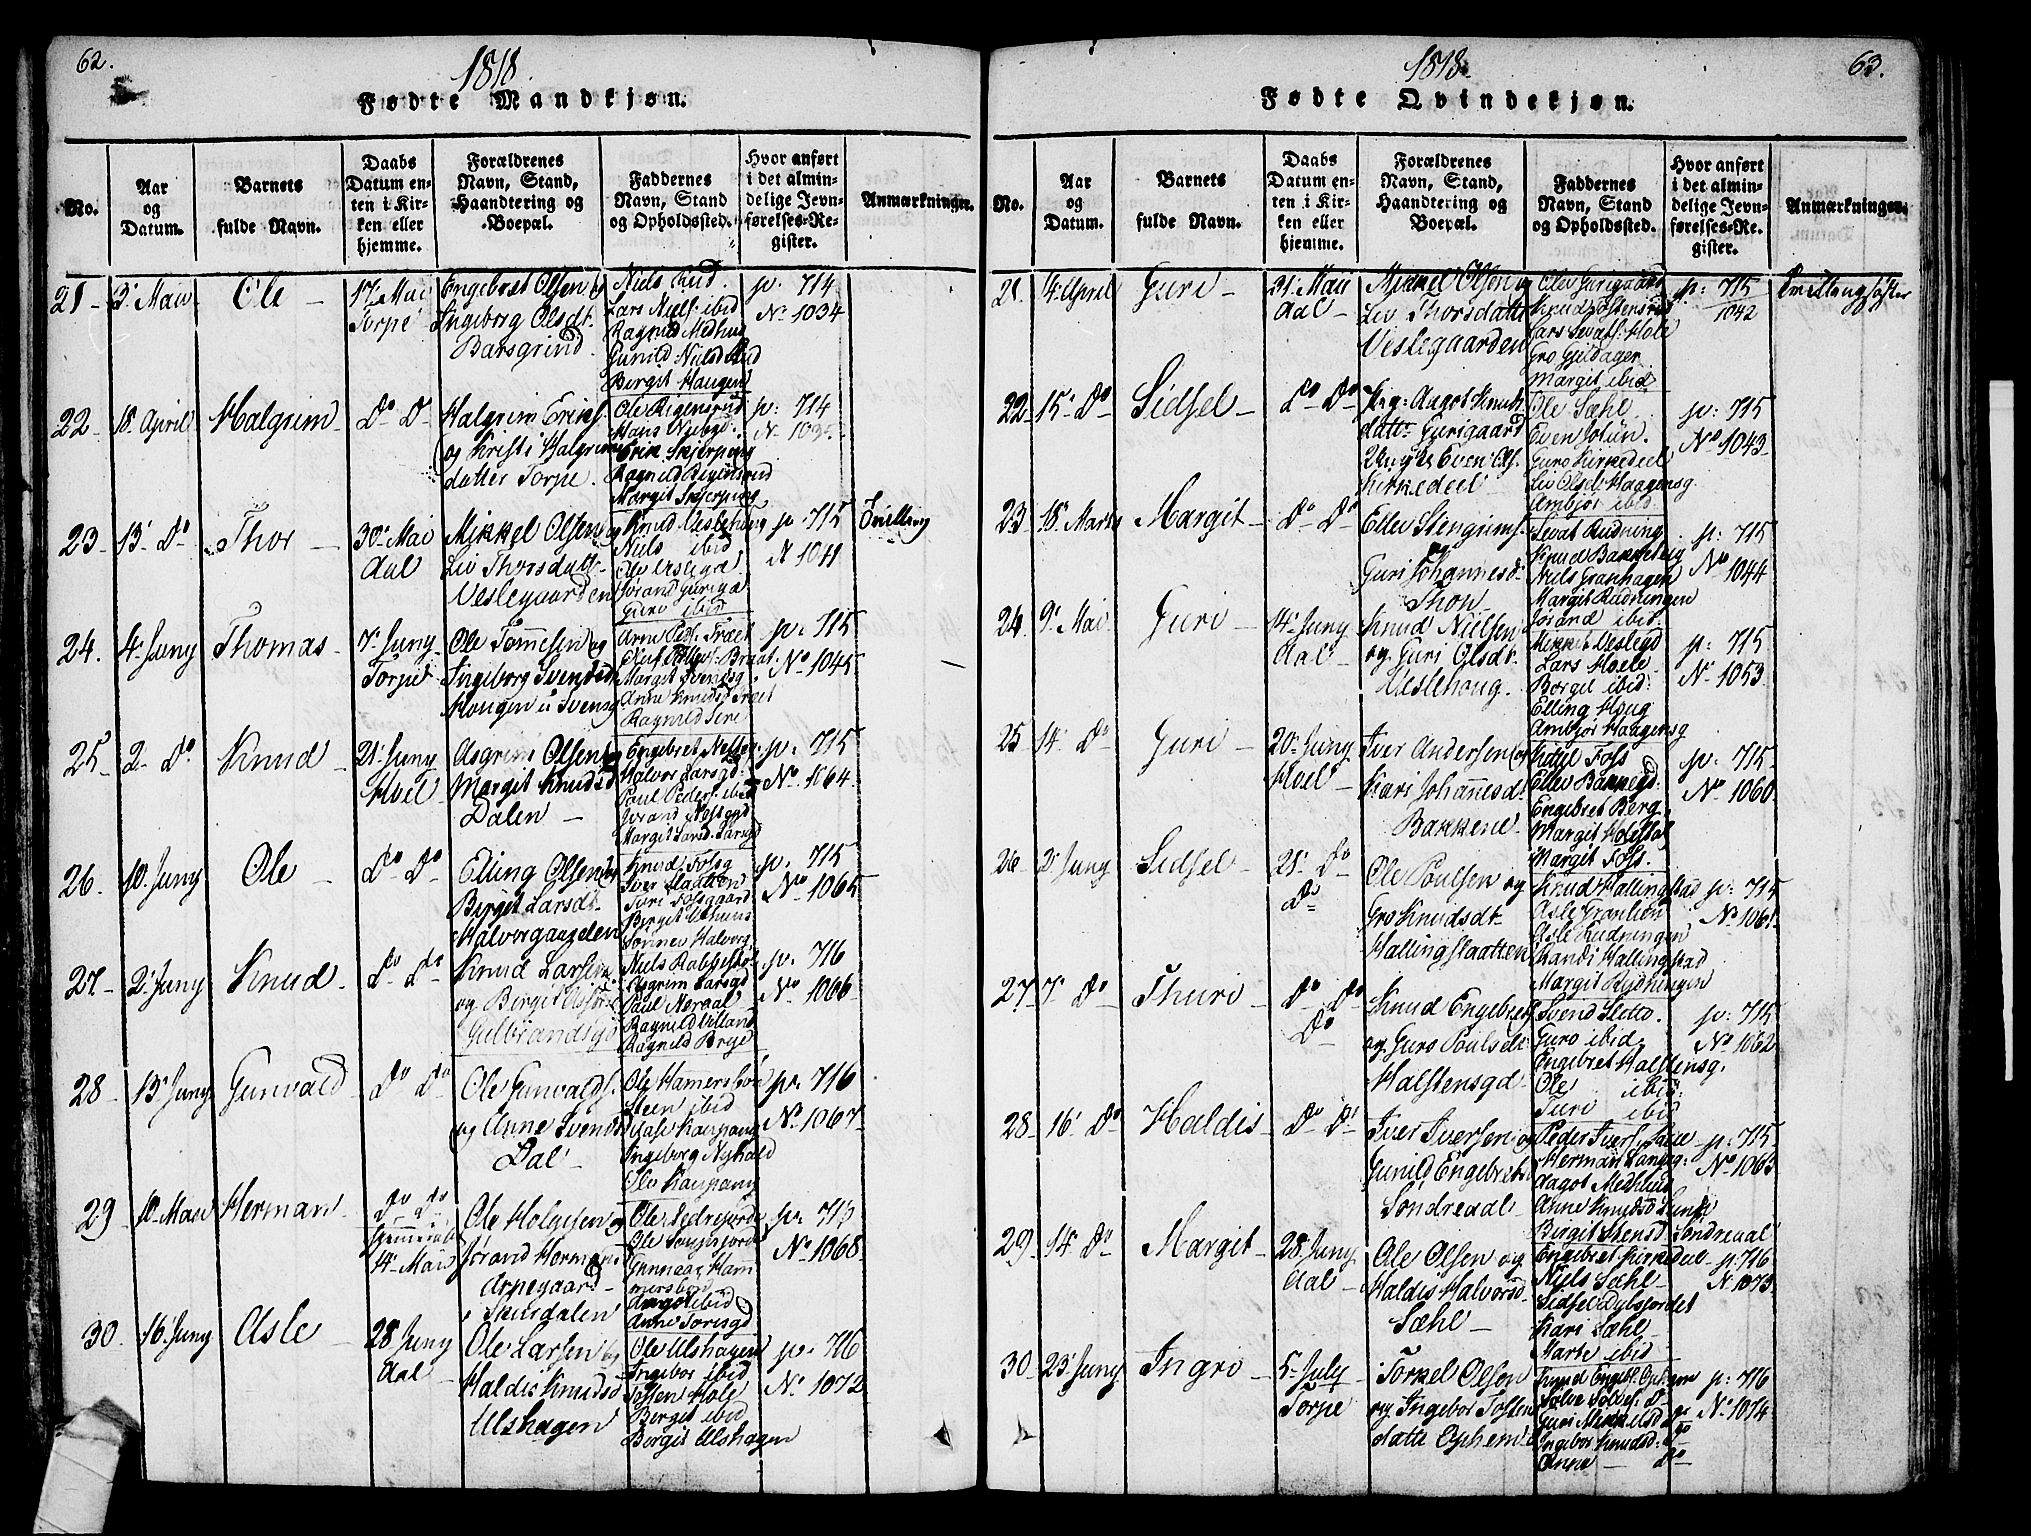 62.
1818.
Fødte Mandkjøn.
No.
Aar
og
Datum.
Barnets
fulde Navn.
Daabs
Datum en-
ten i Kir-
ken eller
hjemme.
Forældrenes
Navn, Stand,
Haandtering og
Boepæl.
Faddernes
Navn, Stand
og Opholdssted.
Hvor anført
i det almin-
delige Jevn-
førelses-Re-
gister.
Anmærkninger.
21
3' Maii
Ole
17de Mai
Torpe
Engebret Olsen og
Ingeborg Olsdt.
Barsgrind
Niels Rud
Lars Niels: ibid
Ragnild Medhus
Gunild Nielsd Rud
Birgit Haugen
p. 714
No 1034
22
18 April
Halgrim
Do Do
Halgrim Erichs.
og Kristi Halgrims
datter Torpe.
Ole Rigensrud
Hans Nyebye
Erik Skjerping
Ragnild Rigensrud
Margit Skjerping
p: 714
N. 1035
23
13' Do
Thor
30te Mai
Aal
Mikkel Olsen og
Liv Thorsdatt.
Veslegaarden
Knud Veslehoug
Niels ibid
Ole Veslega
Jørand Gurigd
Guro ibid
p 715
N 1041
Tvilling
24.
4. Juny
Thomas
7' Juny
Torpe
Ole Tommesen og
Ingeborg Svendsd
Hougen u Svensg
Arne Peds. Træet
Margit Svensg.
Anne Knudsd Træet
Ragnild Seire
p: 715
No 1045
25
2. Do
Knud
21' Juny
Hoel
Asgrim Olsen og
Margit Knudsd
Dalen
Engebret Nelseg.
Halvor Larsgd:
Paul Peders. ibid
Jorand Nelsegd
Margit Larsd. Larsgd
p: 715
No. 1064
26.
10. Juny
Ole
Do Do
Elling Olsen og
Birgit Larsdt.
Halvorgaardelen
Knud Folsg
Iver Haatten
Turi Folsgaard
Birgit Uthuus
Sønnev Halvorg.
p. 715
No 1065
27
2' Juny
Knud
Do Do
Knud Larsen
og Birgit Olsdr
Gulbrandsgd
Niels Rolfshus
Asgrim Larsgd
Paul Neraal
Ragnild Villand
Ragnild Brye
p. 716
No 1066
28
13' Juny
Gunvald
Do Do
Ole Gunvalds.
og Anne Svendsd
Dal
Ole Hamersbøen
Steen ibid
Asle Kaupang
Ingeborg Nyhald
Ole Kaupang
p. 716
No 1067
29
10 Mai
Herman
Do Do
hjemmedøbt
14' Mai
Ole Holgesen og
Jørand Hermans
Arpegaard
i Skurdalen
Ole Nedrejorde
Ole Sagnejorde
Gunnaag Ham-
mersbøed
Aagot ibid
Anne Torisgd
p. 715
No 1068
30.
16 Juny
Asle
28 Juny
Aal
Ole Larsen og
Haldis Knudsd
Ulshagen
Ole Ulshagen
Ingebor ibid
Tosten Hole
Berget ibid
Bergit Ulshagen
p. 716
No. 1072
63.
1818.
Fødte Qvindekjøn.
No.
Aar
og
Datum.
Barnets
fulde Navn.
Daabs
Datum en-
ten i Kir-
ken eller
hjemme.
Forældrenes
Navn, Stand,
Haandtering og
Boepæl.
Faddernes
Navn, Stand
og Opholdssted.
Hvor anført
i det almin-
delige Jevn-
førelses-Re-
gister.
Anmærkninger.
21.
14. April
Guri
31. Maii
Aal
Mikkel Olsen og
Liv Thorsdatt.
Veslegaarden
Ole Gurigaard
Knud Tostensrud
Lars Sevats: Hole
Gro Gjeldager
Margit ibid
p: 715
1042
Tvillingsøster
22
15' Do
Sidsel
Do Do
Pig: Aagot Knuds
datt: Gurigaard
Ungk: Even Ols.
Kirkedeel
Ole Sæhl
Even Jotün.
Guro Kirkedeel
Liv Olsdt Haagensg.
Ambjør ibid.
p: 715
No 1043
23
18' Marts
Margit
Do Do
Ellev Stengrims.
og
Guri Johannesd.
Thon
Sevat Rudning
Knud Bakkeberg
Niels Granhagen
Margit Rudningen
Jorand ibid.
p: 715
No 1044
24
9' Mai
Guri
14. Juny
Aal
Knud Nielsen
og Guri Olsdt.
Veslehoug.
Mikkel Veslegd
Lars Hoele
Borgil ibid:
Elling Houg
Ambjør Haagensg
p: 715
No 1053
25
14. Do
Guri
20. Juny
Hoel
Iver Andersen og
Kari Johannesdt
Bakkene
Ketil Foss
Ellev Bakkegd:
Engebret Berg
Margit Holestøl
Margit Foss.
p: 715
No 1060
26
2' Juny
Sidsel
21. Do
Do
Ole Poulsen og
Gro Knudsdt.
Hallingstaatten
Knud Hallingstad
Asle Granlien
Asle Rudningen
Randi Hallingstad
Margit Rudningen
p: 715
No 1061
27
7. Do
Thuri
Do Do
Do
Knud Engebrets
og Guro Poulsdt
Halstensgd
Svend Sletto.
Guro ibid
Engebret Halstensg.
Ole ibid:
Turi ibid
p: 715
No 1062
28
16' Do
Haldis
Do Do
Iver Iversen og
Gunild Engebretsd
Søndreaal
Peder Ivers.
Herman Langeg:
Aagot Medhus
Anne Knudsd Lunde
Birgit Stensd. Søndreaal
p: 715
No 1063
29
14. Do
Margit
28 Juny
Aal
Ole Olsen og
Haldis Halvorsd.
Sæhl
Engebret Kirkedeel
Niels Sæhl
Sidsel Dybsjordet
Kari Sæhl
Marte ibid
p: 716
N. 1073
30
23' Juny
Ingri
5. July
Torpe
Torkel Olsen
og Ingebor Tostens
datte Ophem
Knud Engebr. Ophem
Salve Salves. Do
Guri Mikkelsd Do
Ingebor Knudsd: Do
Anne Do
p: 716
No 1074